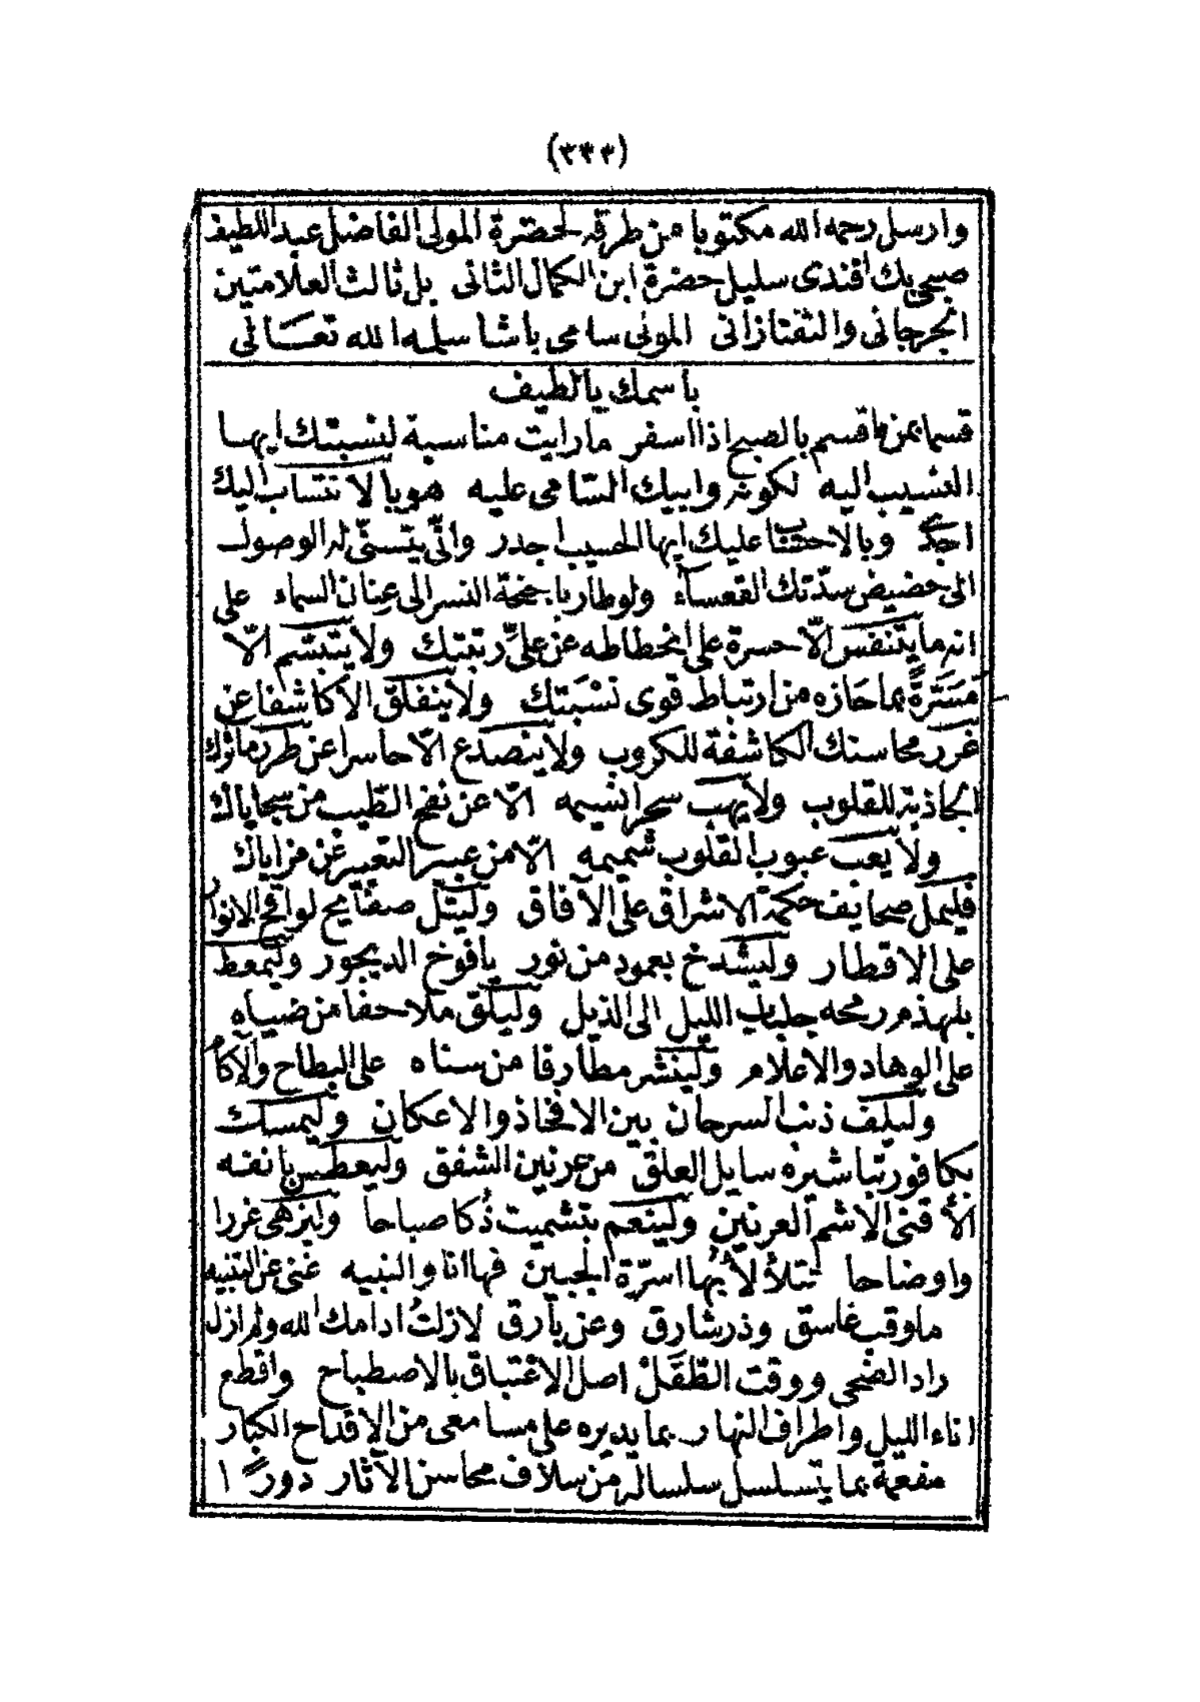 (٣٣٣)
وارسل رحمه الله مكتوبا من طرفه لحضرة المولى الفاضل عبد اللطيف
صبحى بك افندى سليل حضرة ابن الكمال الثانى بل ثالث العلامتين
الجرجانى والتفتازانى المولى سامى باشا سلمه الله تعالى
باسمك يا لطيف
قسما بمن اقسم بالصبح اذا اسفر ما رايت مناسبة لنسبتك ايها
النسيب اليه لكونه وابيك السامى عليه هو بالانتساب اليك
احق وبالاحتنا عليك ايها الحسيب اجدر وانى يتسنى له الوصول
الى حضيض سدتك القعساء ولو طار باجنحة النسر الى عنان السماء على
انه ما يتنفس الا حسرة على انحطاطه عن على رتبتك ولا يتبسم الا
مسرة بما حازه من ارتباط قوى نسبتك ولا ينفلق الا كاشفا عن
غرر محاسنك الكاشفة للكروب ولا ينصدع الا حاسرا عن طرر مآثرك
الجاذبة للقلوب ولا يهب سحرا نسيمه الا عن نفح الطيب من سجاياك
ولا يعب عبوب القلوب شميمه الا من عبير التعبير عن مزاياك
فليمل صحايف حكمة الاشراق على الآفاق وليتل مفاتيح لوافح الانوار
على الاقطار وليشدخ بعمود من نور يافوخ الديجور وليمعط
بلهذم رمحه جلباب الليل الى الذيل وليلق ملاحفا من ضياه
على الوهاد والاعلام ولينشر مطارفا من سناه على البطاح والآكام
وليلف ذنب السرحان بين الافخاذ والاعكان وليمسك
بكافور تباشيره سايل العلق من عرنين الشفق وليعطس بانفه
الاقنى الاشم العرنين ولينعم بتشميت ذكا صباحا وليزهى غررا
واوضاحا تتلألأ بها اسرة الجبين فها انا والنبيه غنى عن التنبيه
ما وقب غاسق وذر شارق وعن بارق لازلت ادامك الله ولم ازل
راد الضحى ووقت الطفل اصل الاغتباق بالاصطباح واقطع
اناء الليل واطراف النهار بما يديره على مسامعى من الاقداح الكبار
مفعمة بما يتسلسل سلساله من سلاف محاسن الآثار دورا